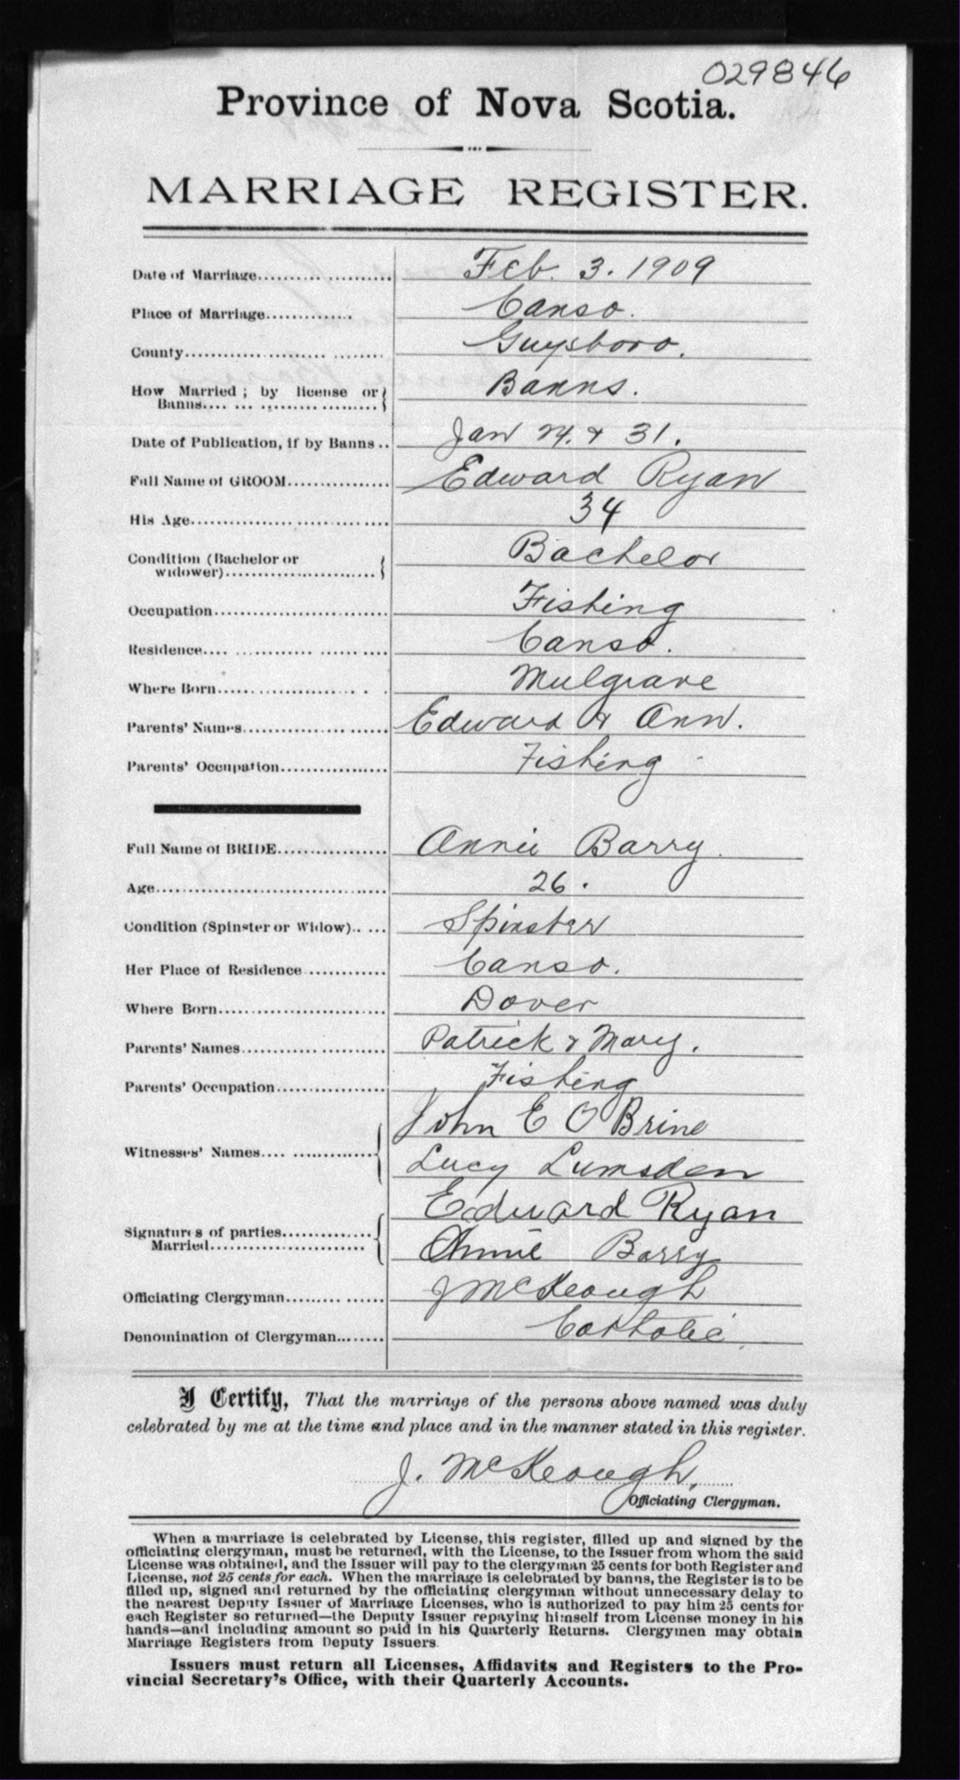 029846
Province of Nova Scotia.
MARRIAGE REGISTER.
Date of Marriage Feb. 3. 1909
Place of Marriage Canso.
County Guysboro.
How Married; by license or Banns Banns.
Date of Publication, if by Banns Jan 24. & 31.
Full Name of GROOM Edward Ryan
His Age 34
Condition (Bachelor or widower) Bachelor
Occupation Fishing
Residence Canso.
Where Born Mulgrave
Parents' Names Edward & Ann.
Parents' Occupation Fishing
Full Name of BRIDE Annie Barry.
Age 26.
Condition (Spinster or Widow) Spinster
Her Place of Residence Canso.
Where Born Dover
Parents' Names Patrick & Mary.
Parents' Occupation Fishing
Witnesses' Names John E O Brine
Lucy Lumsden
Signatures of parties Married Edward Ryan
Annie Barry
Officiating Clergyman J McKeough
Denomination of Clergyman Catholic.
I Certify, That the marriage of the persons above named was duly
celebrated by me at the time and place and in the manner stated in this register.
J. McKeough,
Officiating Clergyman.
When a marriage is celebrated by License, this register, filled up and signed by the
officiating clergyman, must be returned, with the License, to the Issuer from whom the said
License was obtained, and the Issuer will pay to the clergyman 25 cents for both Register and
License, not 25 cents for each. When the marriage is celebrated by banns, the Register is to be
filled up, signed and returned by the officiating clergyman without unnecessary delay to
the nearest Deputy Issuer of Marriage Licenses, who is authorized to pay him 25 cents for
each Register so returned—the Deputy Issuer repaying himself from License money in his
hands—and including amount so paid in his Quarterly Returns. Clergymen may obtain
Marriage Registers from Deputy Issuers
Issuers must return all Licenses, Affidavits and Registers to the Pro-
vincial Secretary's Office, with their Quarterly Accounts.